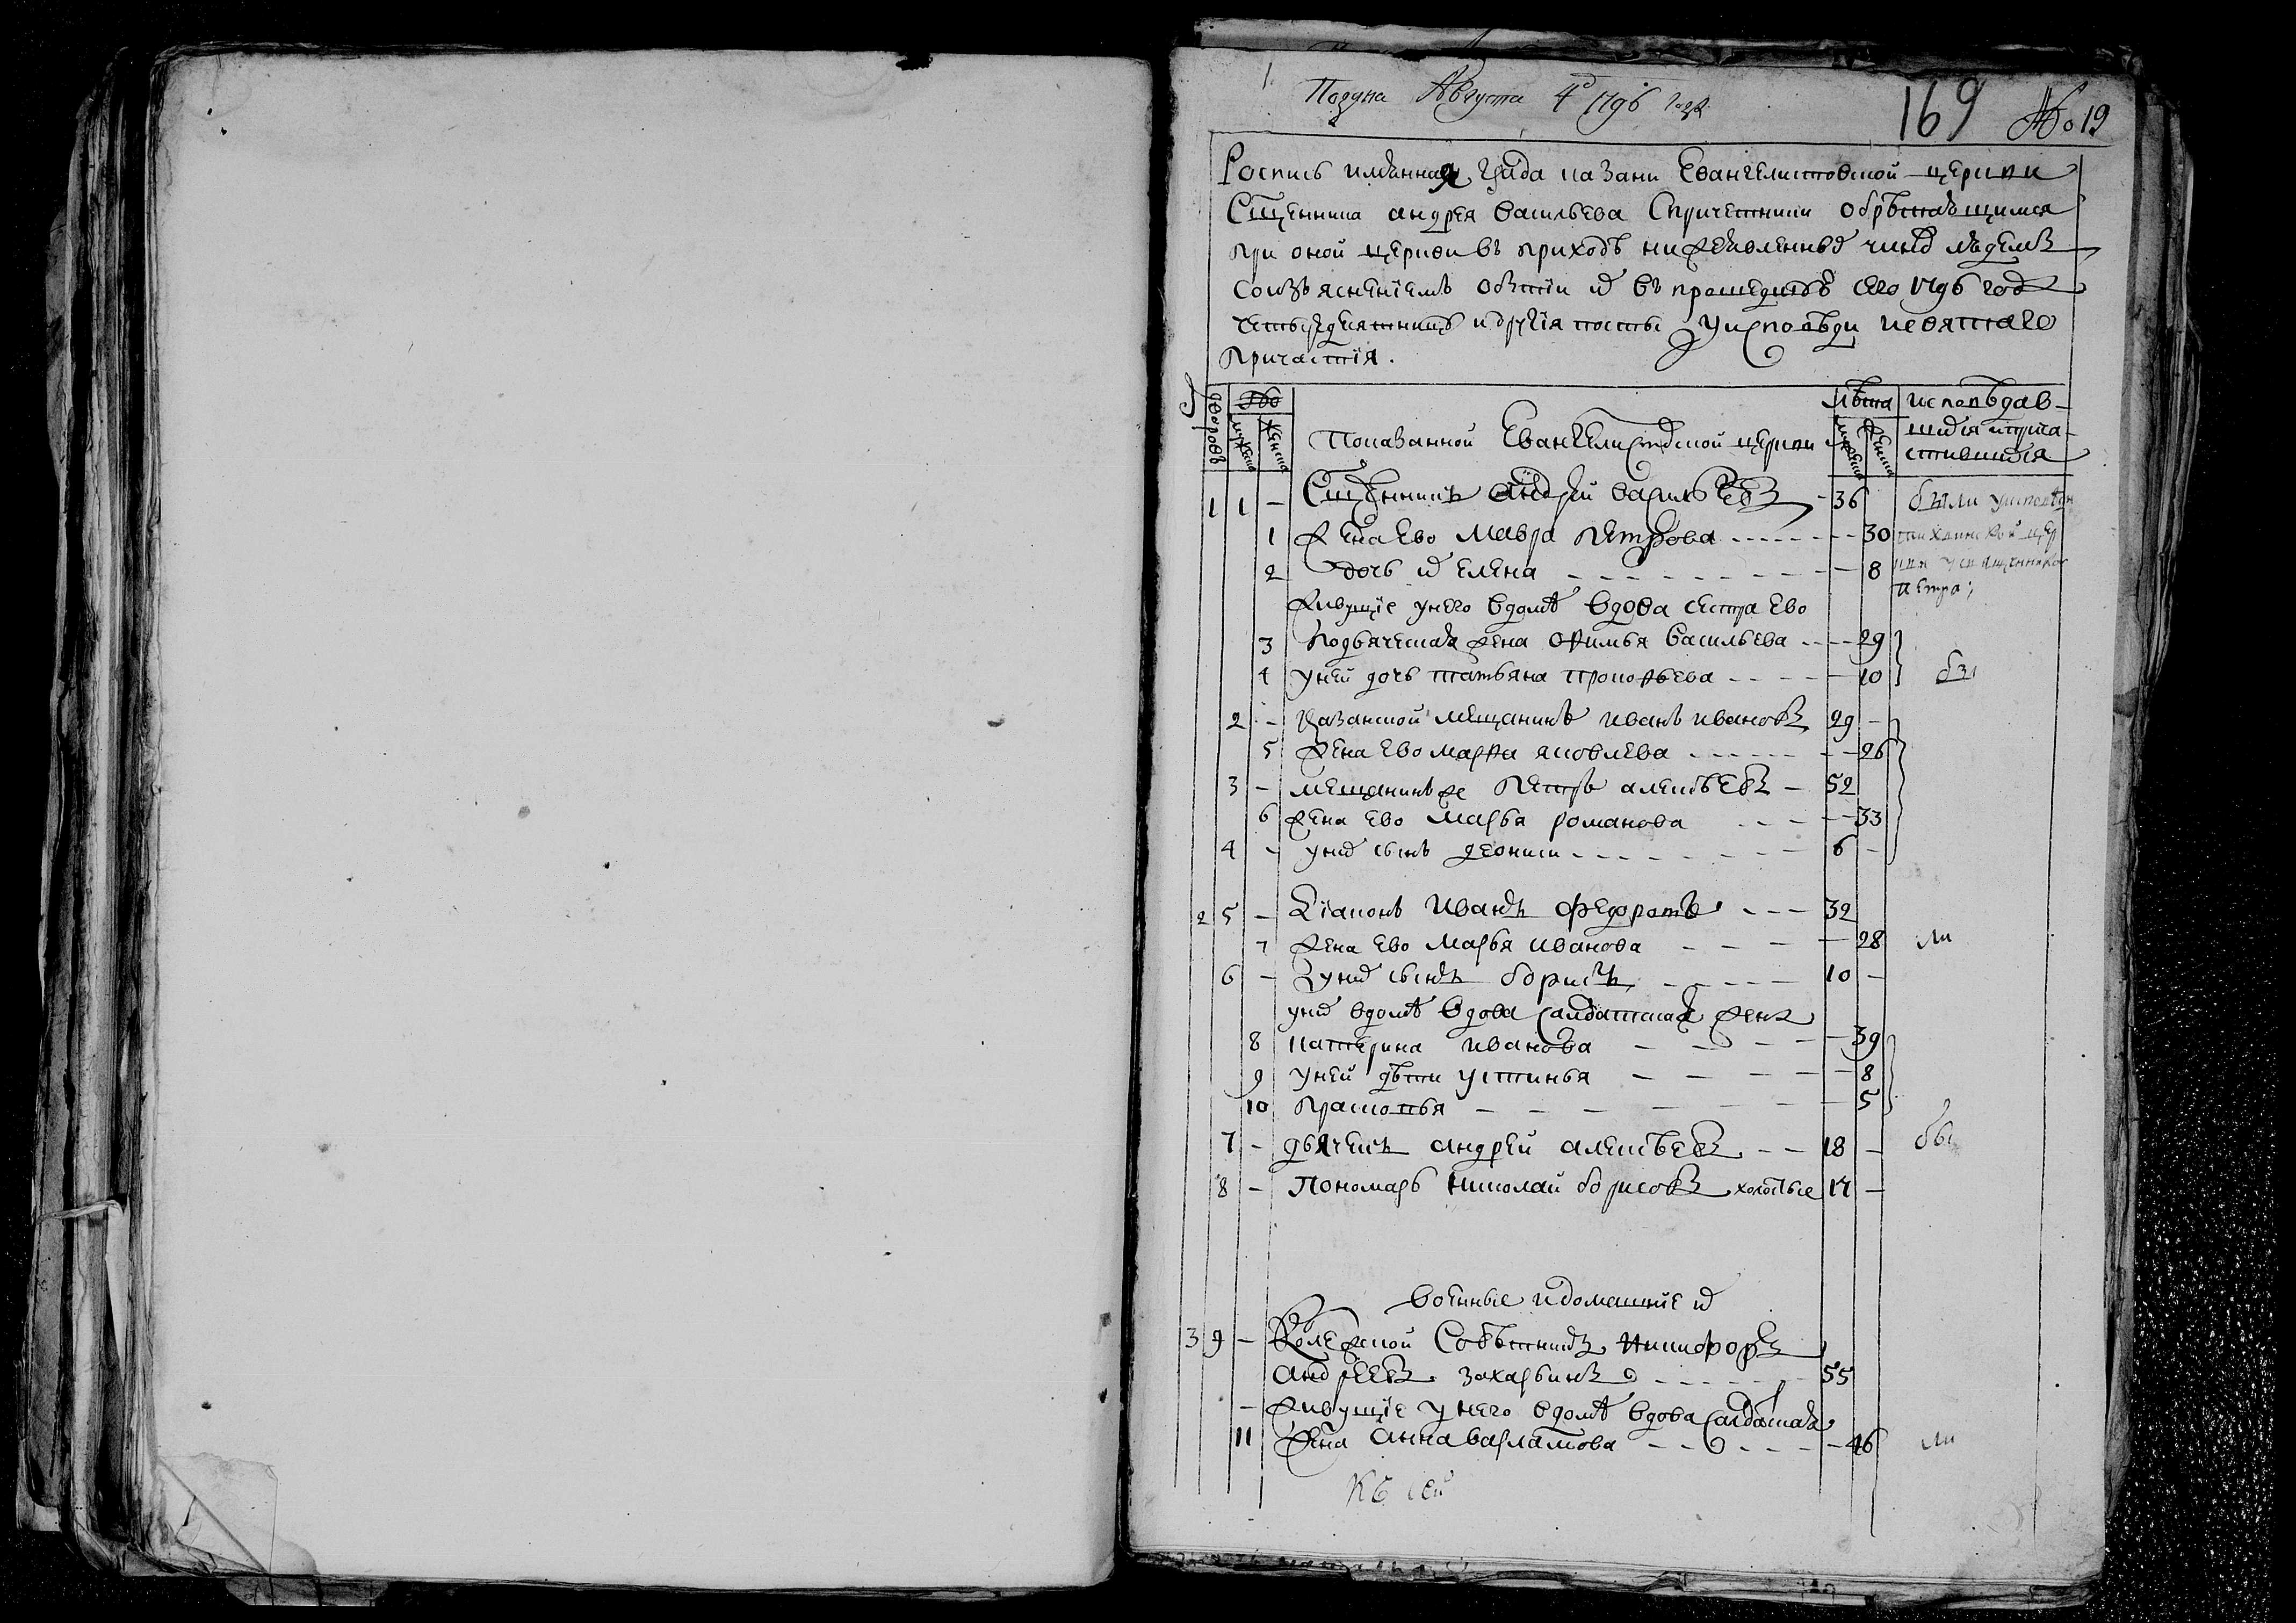 Августа 4д 1796 года
169 № 19
Роспись именная града казани Евангелистовской церкви
Сщенника андрея васильева Спричетники обрѣтающимся
при оной церкви въ приходѣ нижеявленныхъ чиновъ людемъ
соизъяснениемъ ихъ въ прошедшей сего 1796 году
четыредесятницѣ и другiя посты у исповѣди исвятаго
причастiя.
дворовъ мужеска женска Показанной Евангелистовской церкви лѣта мужеска женска исповѣдав-
шихся иприча-
стившихся
1 1 - Сщенникъ андрей васильевъ - 36 были уисповѣди
1 жена Ево мавра петрова - - - - - - - 30 тихвинской цер
2 дочь их елена - - - - - - - - 8 кви усвященника
петра;
живущiе унего вдомѣ вдова сестра Ево
3 подьяческая жена офимья васильева - - - - 29
4 уней дочь татьяна прокофьева - - - - - 10 бы
2 - казанской мещанинъ иванъ ивановъ 29 -
5 жена Ево марѳа яковлева - - - - - - - 26
3 - мещанинъ же петръ алексѣевъ - 52
6 жена Ево марья романова - - - - - 33
4 - уних сынъ деониси - - - - - - - - 6 -
2 5 - Дiаконъ иванъ федоротъ - - - 32
7 жена Ево марья иванова - - - - - 28 ли
6 - уних сынъ борисъ - - - - - 10 -
уних вдомѣ вдова салдатская жена
8 катерина иванова - - - - - 39
9 уней дѣти устинья - - - - - 8
10 прасковья - - - - - - - 5
7 - дьячекъ андрей алексѣевъ - - 18 - бы
8 - Пономарь николай борисовъ холостые 17 -
военные идомашние их
3 9 - Колежской Совѣтникъ никифоръ
андреевъ захарьинъ - - - - - - 55
- живущiе у него вдомѣ вдова салдатская
11 жена анна варламова - - - - - - - 46 ли
къ сей